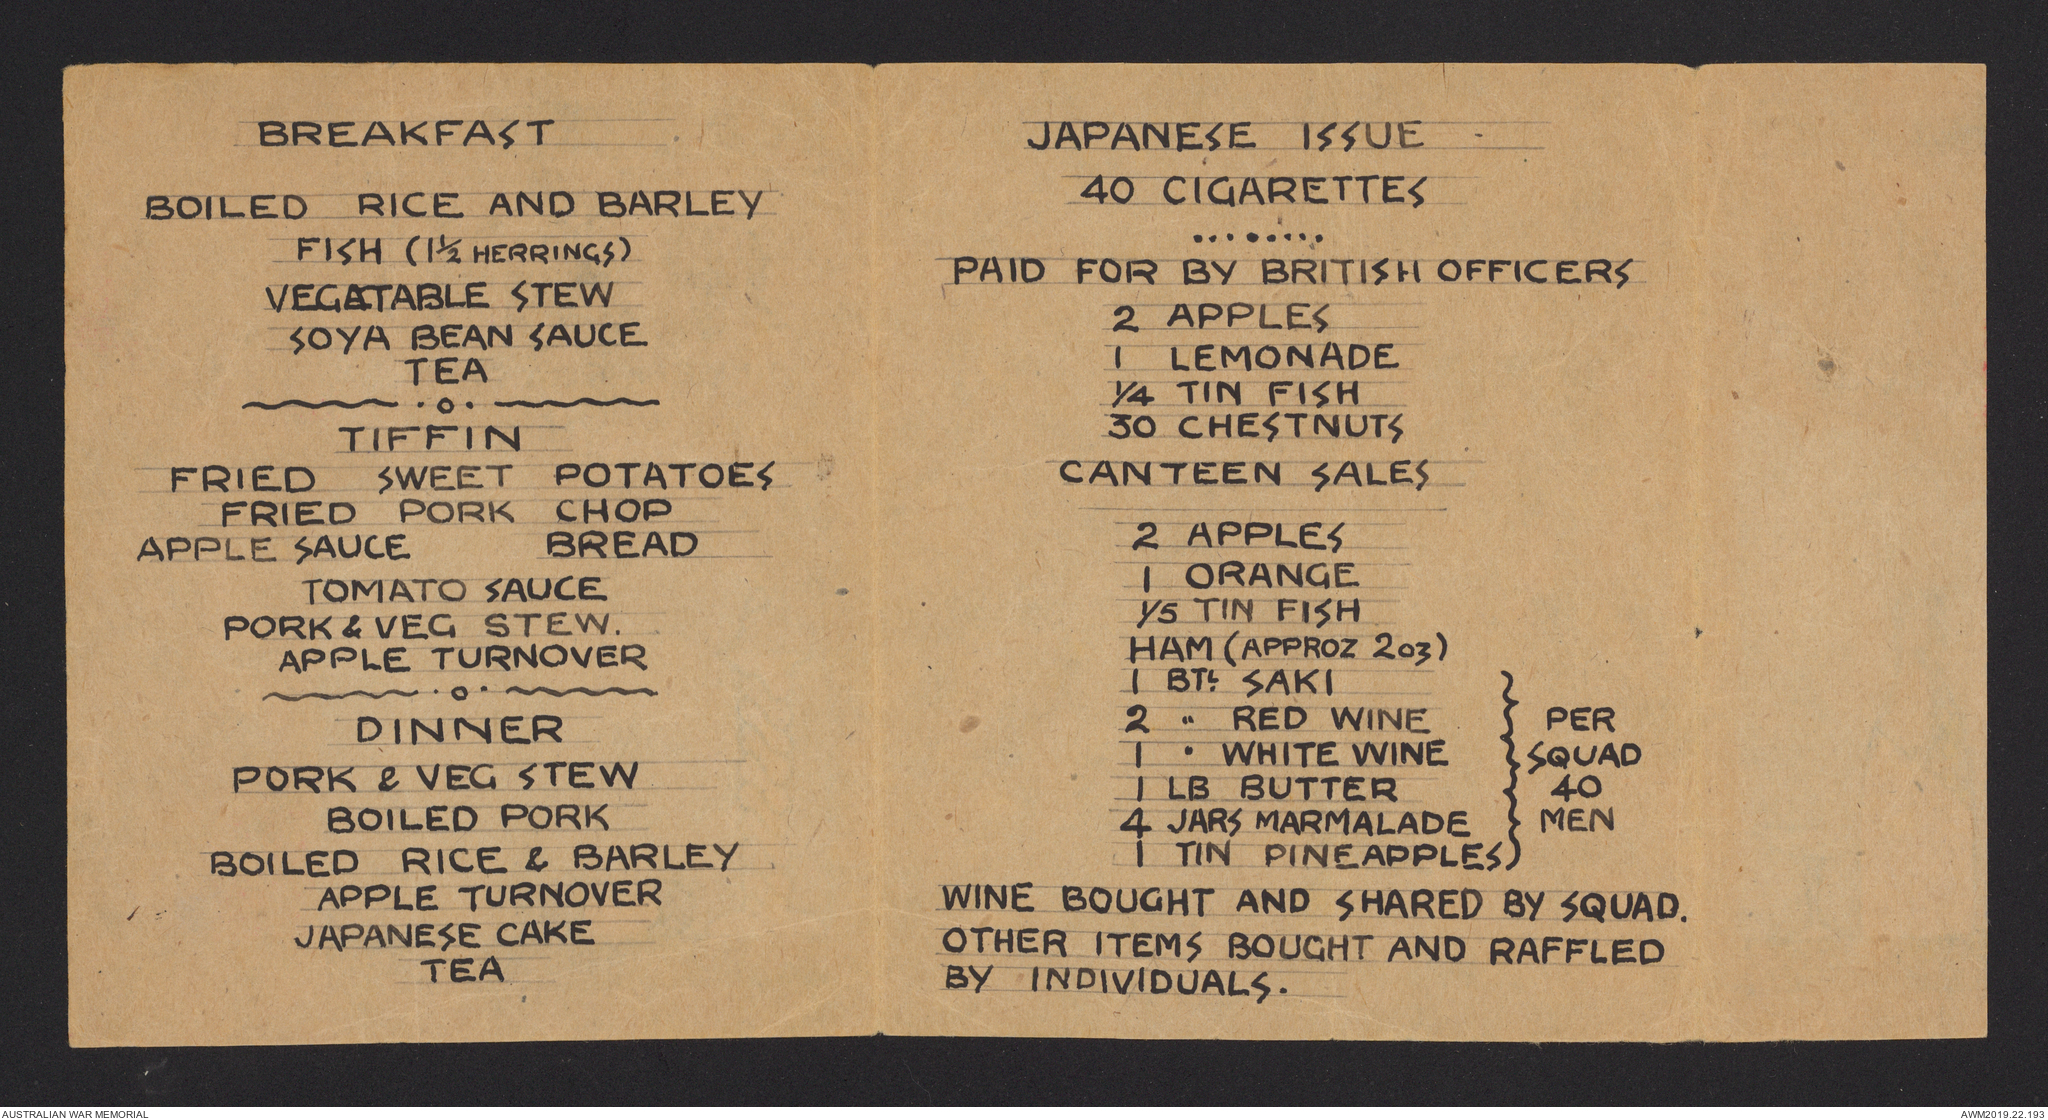 BREAKFAST
BOILED RICE AND BARLEY
FISH (1½ HERRINGS)
VEGATABLE STEW
SOYA BEAN SAUCE
TEA
TIFFIN
FRIED SWEET POTATOES
FRIED PORK CHOP
APPLE SAUCE BREAD
TOMATO SAUCE
PORK & VEG STEW.
APPLE TURNOVER
DINNER
PORK & VEG STEW
BOILED PORK
BOILED RICE & BARLEY
APPLE TURNOVER
JAPANESE CAKE
TEA
JAPANESE ISSUE
40 CIGARETTES
........
PAID FOR BY BRITISH OFFICERS
2 APPLES
1 LEMONADE
1/4 TIN FISH
30 CHESTNUTS
CANTEEN SALES
2 APPLES
1 ORANGE
1/5 TIN FISH
HAM (APPROZ 2oz)
1 BTL. SAKI
2 " RED WINE
1 " WHITE WINE
1 LB BUTTER
4 JARS MARMALADE
1 TIN PINEAPPLES
PER
SQUAD
40
MEN
WINE BOUGHT AND SHARED BY SQUAD.
OTHER ITEMS BOUGHT AND RAFFLED
BY INDIVIDUALS.
AUSTRALIAN WAR MEMORIAL
AWM2019.22.193